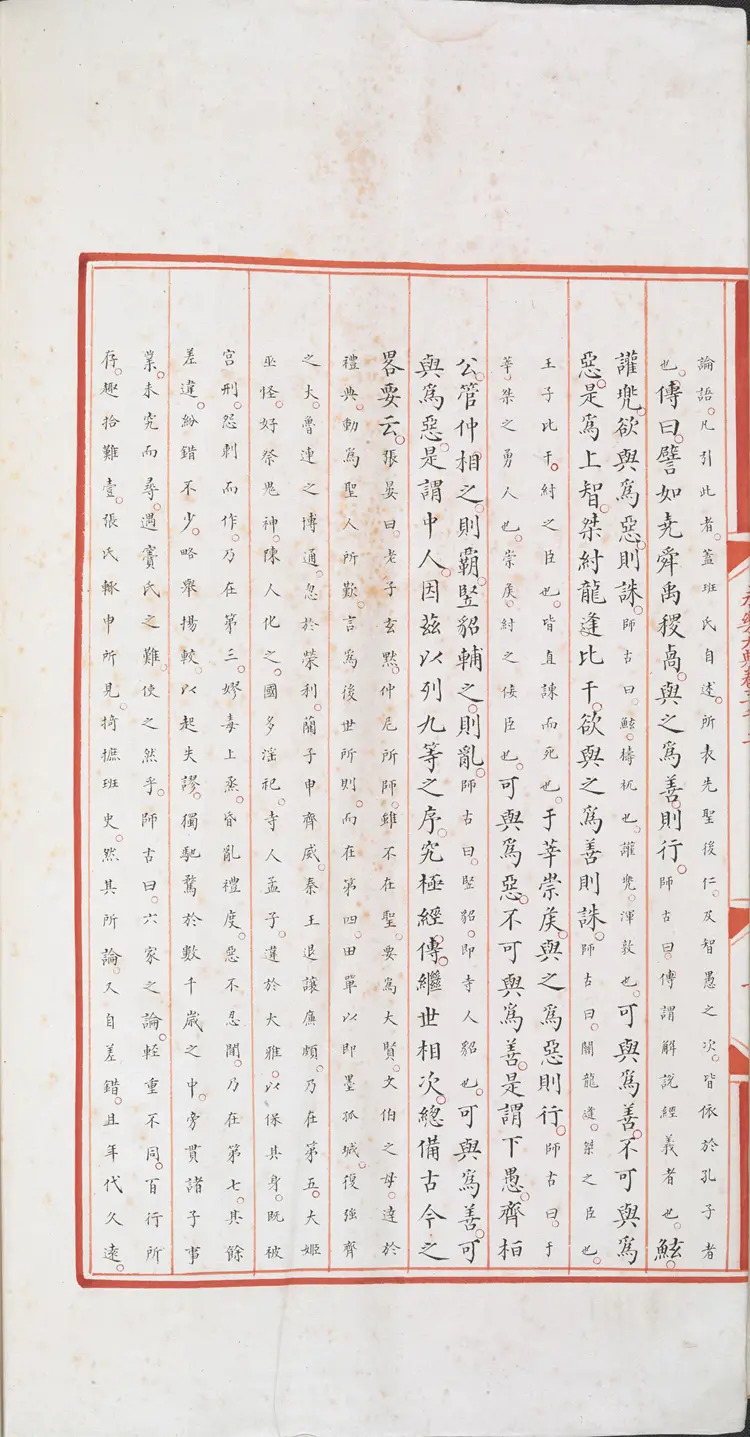 論語。凡引此者。蓋班氏自述。所表先聖後仁。及智愚之次。皆依於孔子者
也。傳曰。譬如堯舜禹稷卨。與之爲善。則行。師古曰。傳謂解說經義者也。鮌
讙兜。欲與爲惡。則誅。師古曰。鮌。檮杌也。讙兜。渾敦也。可與爲善。不可與爲
惡。是爲上智。桀紂龍逢比干。欲與之爲善則誅。師古曰。關龍逢。桀之臣也。
王子比干。紂之臣也。皆直諫而死也。于莘崇矦。與之爲惡則行。師古曰。于
莘。桀之勇人也。崇矦。紂之佞臣也。可與爲惡。不可與爲善。是謂下愚。齊桓
公。管仲相之。則霸。竪貂輔之。則亂。師古曰。竪貂。即寺人貂也。可與爲善。可
與爲惡。是謂中人。因兹以列九等之序。究極經傳。繼世相次。總備古今之
畧要云。張晏曰。老子玄默。仲尼所師。雖不在聖。要爲大賢。文伯之母。達於
禮典。動爲聖人所歎。言爲後世所則。而在第四。田單以即墨孤城。復強齊
之大。魯連之博通。忽於榮利。藺子申齊威。秦王退讓廉頗。乃在第五。大姬
巫怪。好祭鬼神。陳人化之。國多滛祀。寺人孟子。違於大雅。以保其身。既被
宫刑。怨刺而作。乃在第三。嫪毒上烝。昏亂禮度。惡不忍聞。乃在第七。其餘
差違。紛錯不少。略舉揚較。以起失謬。獨馳騖於數千歲之中。旁貫諸子事
業。未究而尋。遇竇氏之難。使之然乎。師古曰。六家之論。輕重不同。百行所
存。趣捨難壹。張氏輒申所見。掎摭班史。然其所論。又自差錯。且年代久遠。